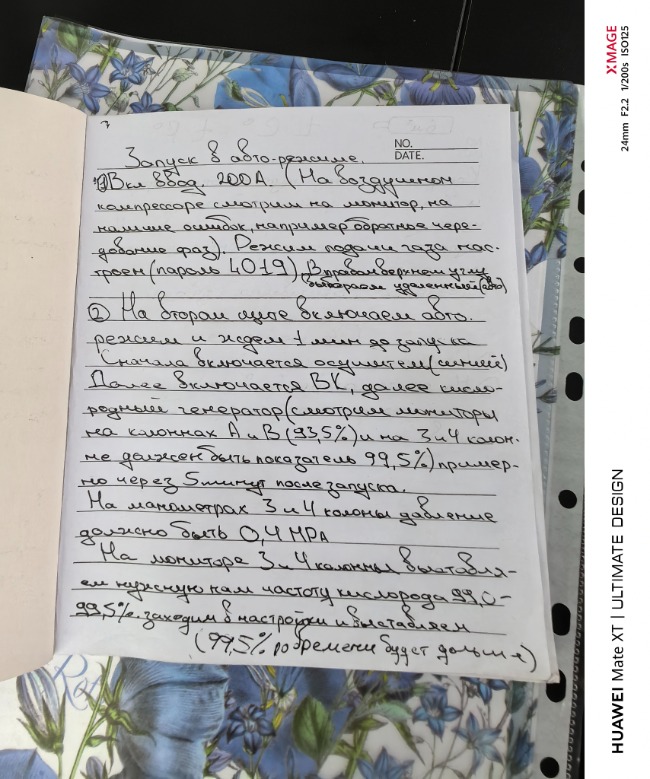 NO.
DATE.
Запуск в авто-режиме.
1) Вкл ввод. 200А. (На воздушном
компрессоре смотрим на монитор, на
наличие ошибок, например обратное чере-
дование фаз). Режим подачи газа нас-
троен (пароль 4019) В правом верхнем углу
выбираем удаленный (авто)
2) На втором щите включаем авто.
режим и ждем 1 мин до запуска
Сначала включается осушитель (синий)
Далее включается ВК, далее кисло-
родный генератор (смотрим мониторы
на колоннах А и В (93,5%) и на 3 и 4 колон-
не должен быть показатель 99,5%) пример-
но через 5 минут после запуска.
На манометрах 3 и 4 колоны давление
должно быть 0,4 MPA
На мониторе 3 и 4 колонны выставля-
ем нужную нам частоту кислорода 99,0-
99,5%. заходим в настройки и выставляем
(99,5% по времени будет дольше)
XMAGE
24mm F2.2 1/200s ISO125
HUAWEI Mate XT | ULTIMATE DESIGN